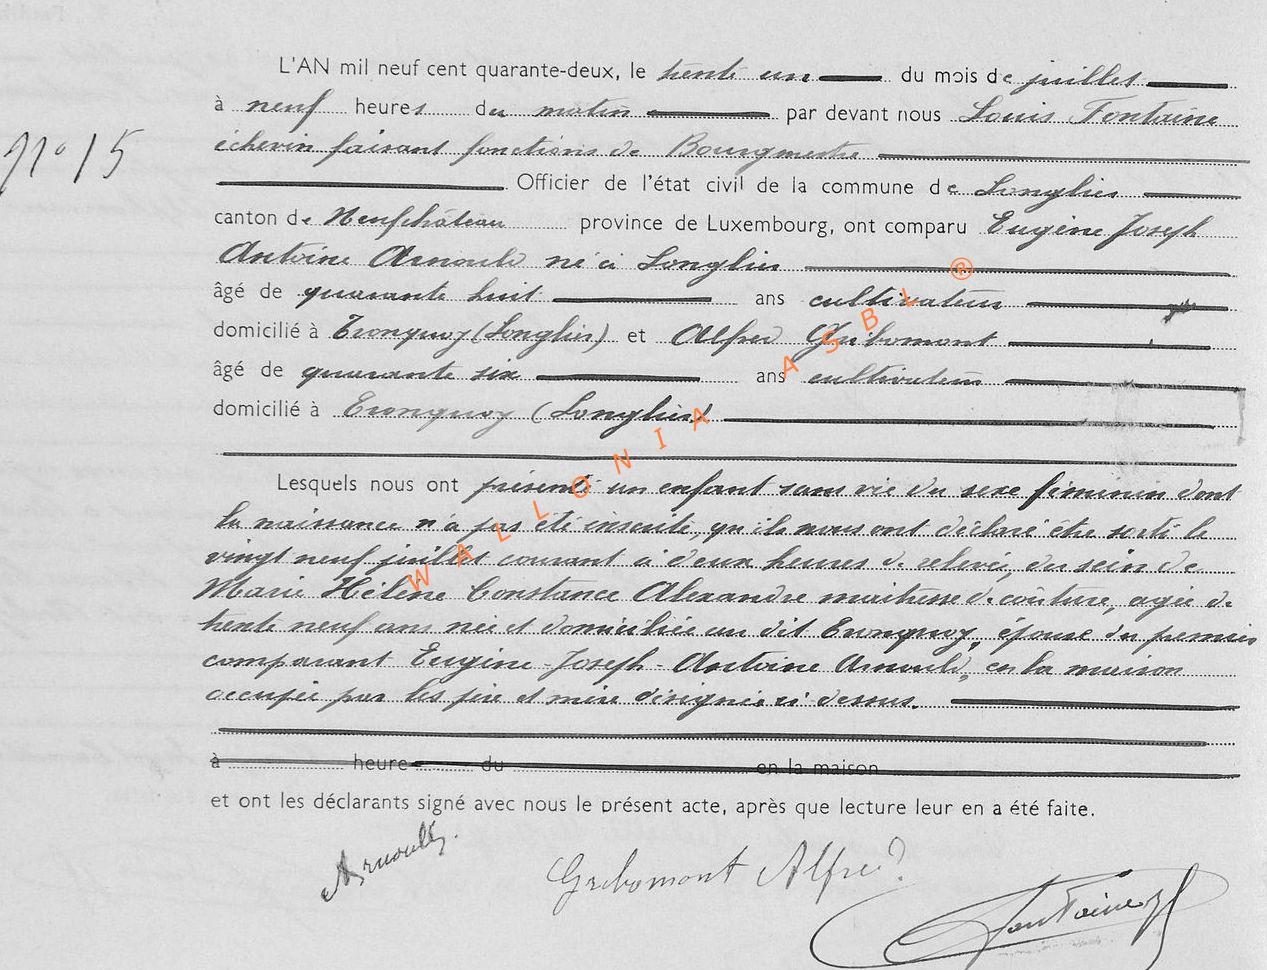 L'AN mil neuf cent quarante-deux, le trente un du mois de juillet
à neuf heures du matin par devant nous Louis Fontaine
n° 15
échevin faisant fonctions de Bourgmestre
Officier de l'état civil de la commune de Longlier
canton de Neufchâteau province de Luxembourg, ont comparu Eugène Joseph
Antoine Arnould né à Longlier
âgé de quarante huit ans cultivateur
domicilié à Tronquoy (Longlier) et Alfred Gribomont
âgé de quarante six ans cultivateur
domicilié à Tronquoy (Longlier)
Lesquels nous ont présenté un enfant sans vie du sexe féminin dont
la naissance n'a pas été inscrite, qu'ils nous ont déclaré être sorti le
vingt neuf juillet courant à deux heures de relevée, du sein de
Marie Hélène Constance Alexandre maitresse de couture, agée de
trente neuf ans née et domiciliée au dit Tronquoy, épouse du premier
comparant Eugène-Joseph-Antoine Arnould, en la maison
occupée par les père et mère désignés ci dessus.
à heure du en la maison
et ont les déclarants signé avec nous le présent acte, après que lecture leur en a été faite.
Arnould.
Gribomont Alfred
Fontaine
WALLONIA ASBL ®